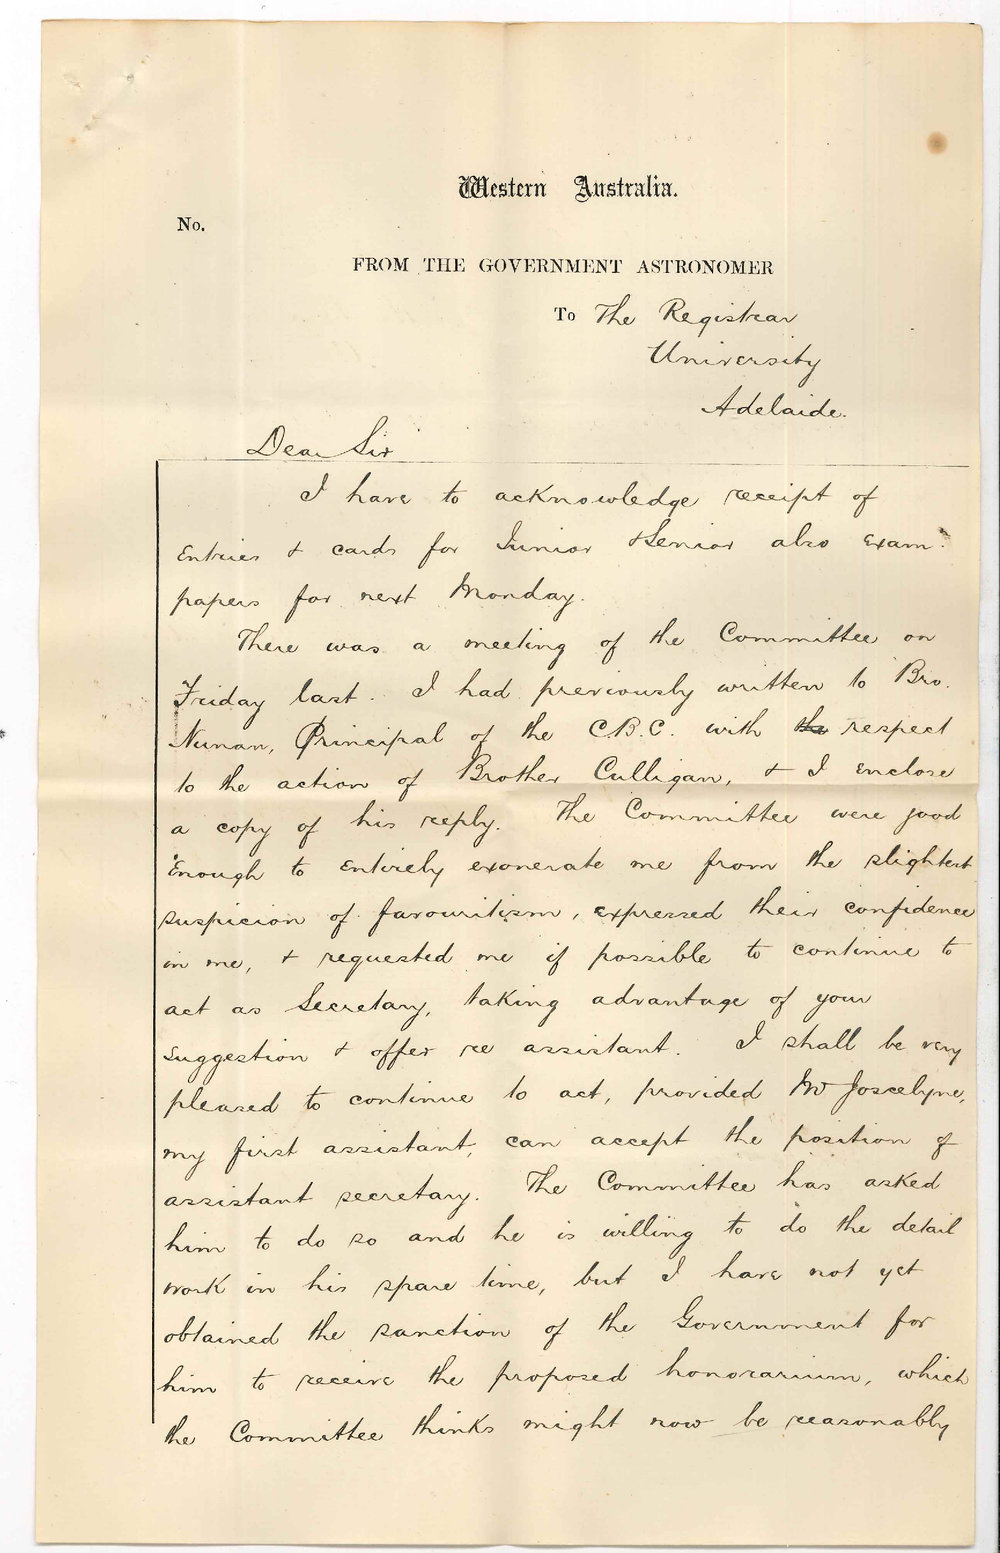 Western Australia.
No.
FROM THE GOVERNMENT ASTRONOMER
To The Registrar
University
Adelaide.
Dear Sir
I have to acknowledge receipt of
Entries & cards for Junior & Senior also Exam.
papers for next Monday.
There was a meeting of the Committee on
Friday last. I had previously written to Bro.
Nunan, Principal of the C.B.C. with the respect
to the action of Brother Culligan, & I enclose
a copy of his reply. The Committee were good
enough to entirely exonerate me from the slightest
suspicion of favouritism, expressed their confidence
in me, & requested me if possible to continue to
act as Secretary, taking advantage of your
suggestion & offer re assistant. I shall be very
pleased to continue to act, provided Mr Joscelyne,
my first assistant, can accept the position of
assistant secretary. The Committee has asked
him to do so and he is willing to do the detail
work in his spare time, but I have not yet
obtained the sanction of the Government for
him to receive the proposed honorarium, which
the Committee thinks might now be reasonably